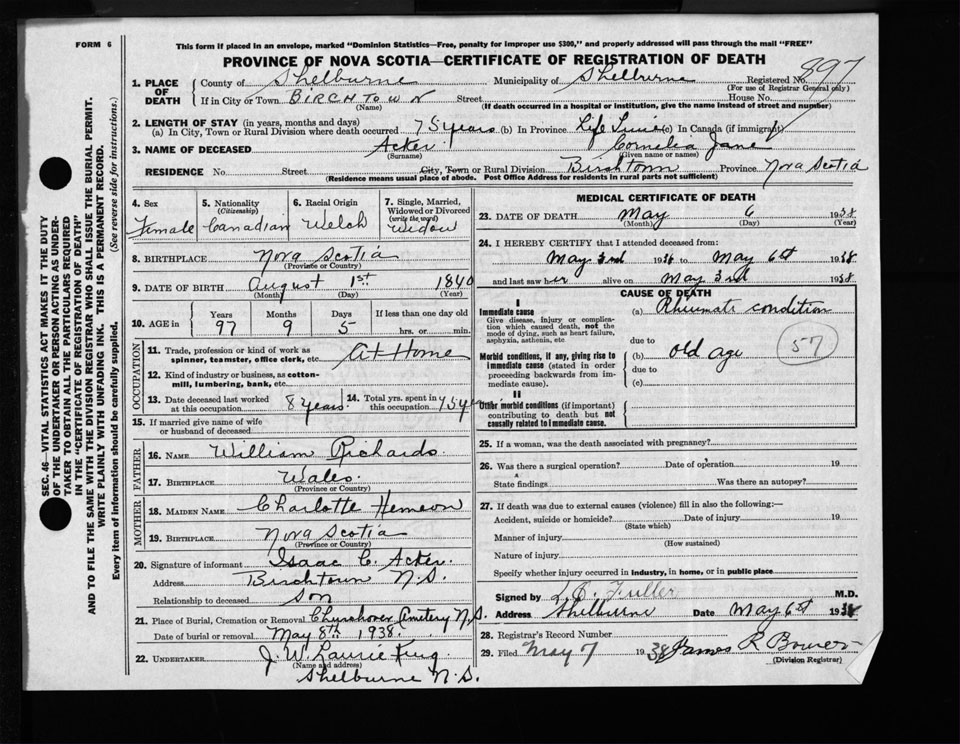 FORM 6
This form if placed in an envelope, marked "Dominion Statistics—Free, penalty for improper use $300," and properly addressed will pass through the mail "FREE"
PROVINCE OF NOVA SCOTIA—CERTIFICATE OF REGISTRATION OF DEATH
897
1. PLACE OF DEATH
County of Shelburne Municipality of Shelburne Registered No.
(For use of Registrar General only)
If in City or Town BIRCHTOWN Street House No.
(Name) (If death occurred in a hospital or institution, give the name instead of street and number)
2. LENGTH OF STAY (in years, months and days)
(a) In City, Town or Rural Division where death occurred 75 years (b) In Province Life Time (c) In Canada (if immigrant)
3. NAME OF DECEASED Acker Cornelia Jane
(Surname) (Given name or names)
RESIDENCE No. Street City, Town or Rural Division Birchtown Province Nova Scotia
(Residence means usual place of abode. Post Office Address for residents in rural parts not sufficient)
SEC. 46—VITAL STATISTICS ACT MAKES IT THE DUTY
OF THE UNDERTAKER OR PERSON ACTING AS UNDER-
TAKER TO OBTAIN ALL THE PARTICULARS REQUIRED
IN THE "CERTIFICATE OF REGISTRATION OF DEATH"
AND TO FILE THE SAME WITH THE DIVISION REGISTRAR WHO SHALL ISSUE THE BURIAL PERMIT.
WRITE PLAINLY WITH UNFADING INK. THIS IS A PERMANENT RECORD.
Every item of information should be carefully supplied. (See reverse side for instructions.)
4. Sex
Female
5. Nationality
(Citizenship)
Canadian
6. Racial Origin
Welch
7. Single, Married, Widowed or Divorced
(write the word)
Widow
8. BIRTHPLACE Nova Scotia
(Province or Country)
9. DATE OF BIRTH August 1st 1840
(Month) (Day) (Year)
10. AGE in
Years Months Days If less than one day old
97 9 5 hrs. or min.
OCCUPATION
11. Trade, profession or kind of work as
spinner, teamster, office clerk, etc. At Home
12. Kind of industry or business, as cotton-
mill, lumbering, bank, etc.
13. Date deceased last worked
at this occupation 8 years
14. Total yrs. spent in
this occupation 75 years
15. If married give name of wife
or husband of deceased
FATHER
16. NAME William Richards
17. BIRTHPLACE Wales
(Province or Country)
MOTHER
18. MAIDEN NAME Charlotte Hemeon
19. BIRTHPLACE Nova Scotia
(Province or Country)
20. Signature of informant Isaac C. Acker
Address Birchtown N.S.
Relationship to deceased Son
21. Place of Burial, Cremation or Removal Cemetery N.S.
Date of burial or removal May 8th 1938
22. UNDERTAKER J. W. Laurie King
(Name and address)
Shelburne N.S.
MEDICAL CERTIFICATE OF DEATH
23. DATE OF DEATH May 6 1938
(Month) (Day)
24. I HEREBY CERTIFY that I attended deceased from:
May 3rd 1938 to May 6th 1938
and last saw her alive on May 3rd 1938
CAUSE OF DEATH
I
Immediate cause
Give disease, injury or complication which caused death, not the mode of dying, such as heart failure, asphyxia, asthenia, etc
(a) Rheumatic condition
due to
Morbid conditions, if any, giving rise to immediate cause (stated in order proceeding backwards from immediate cause).
(b) old age
due to
(c)
57
II
Other morbid conditions (if important) contributing to death but not causally related to immediate cause.
25. If a woman, was the death associated with pregnancy?
26. Was there a surgical operation? Date of operation 19
State findings Was there an autopsy?
27. If death was due to external causes (violence) fill in also the following:—
Accident, suicide or homicide? Date of injury 19
(State which)
Manner of injury
(How sustained)
Nature of injury
Specify whether injury occurred in industry, in home, or in public place
Signed by Fuller M.D.
Address Shelburne Date May 6th 1938
28. Registrar's Record Number
29. Filed May 7 1938 James R Bower
(Division Registrar)